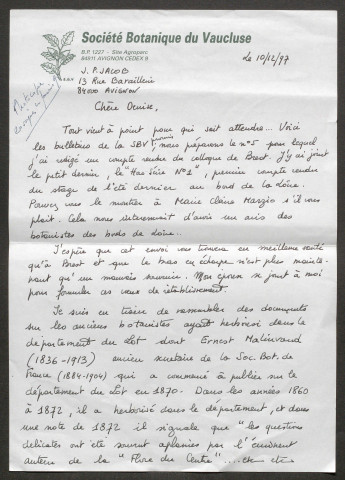 Société Botanique du Vaucluse
B.P. 1227 - Site Agroparc
84911 AVIGNON CEDEX 9
le 10/12/97
J. P. JACOB
13 Rue Barailerie
84000 AVIGNON
Chère Denise,
Tout vient à point pour qui sait attendre... Voici
les bulletins de la SBV promis, nous préparons le n°5 pour lequel
j'ai rédigé un compte rendu du colloque de Brest. J'y ai joint
le petit dernier, le "Hors Série N°1", premier compte rendu
du stage de l'été dernier au bord de la Loire.
Pouvez vous le montrer à Marie Claire s'il vous
plait. Cela nous intéresserait d'avoir un avis des
botanistes des bords de Loire.
J'espère que cet envoi vous trouvera en meilleure santé
qu'à Brest et que le bras en écharpe n'est plus mainte-
nant qu'un mauvais souvenir. Mon épouse se joint à moi
pour formuler ces vœux de rétablissement.
Je suis en train de rassembler des documents
sur les anciens botanistes ayant herborisé dans le
département du Lot dont Ernest Malinvaud
(1836-1913) ancien secrétaire de la Soc. Bot. de
France (1884-1904) qui a commencé à publier sur le
département du Lot en 1870. Dans les années 1860
à 1872, il a herborisé dans le département, et dans
une note de 1872 il signale que "les questions
délicates ont été souvent aplanies par l'éminent
auteur de la "Flore du Centre" ..... etc etc